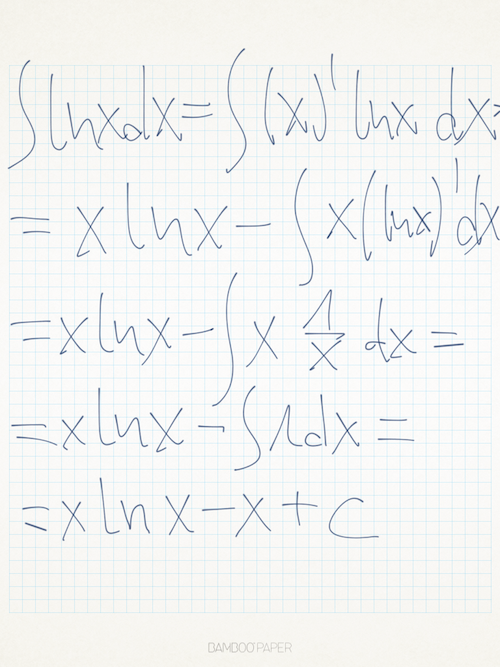 ∫ lnxdx = ∫ (x)' lnx dx =
= x lnx - ∫ x(lnx)' dx
= x lnx - ∫ x 1/x dx =
= x lnx - ∫ 1dx =
= x ln x - x + C
BAMBOO PAPER